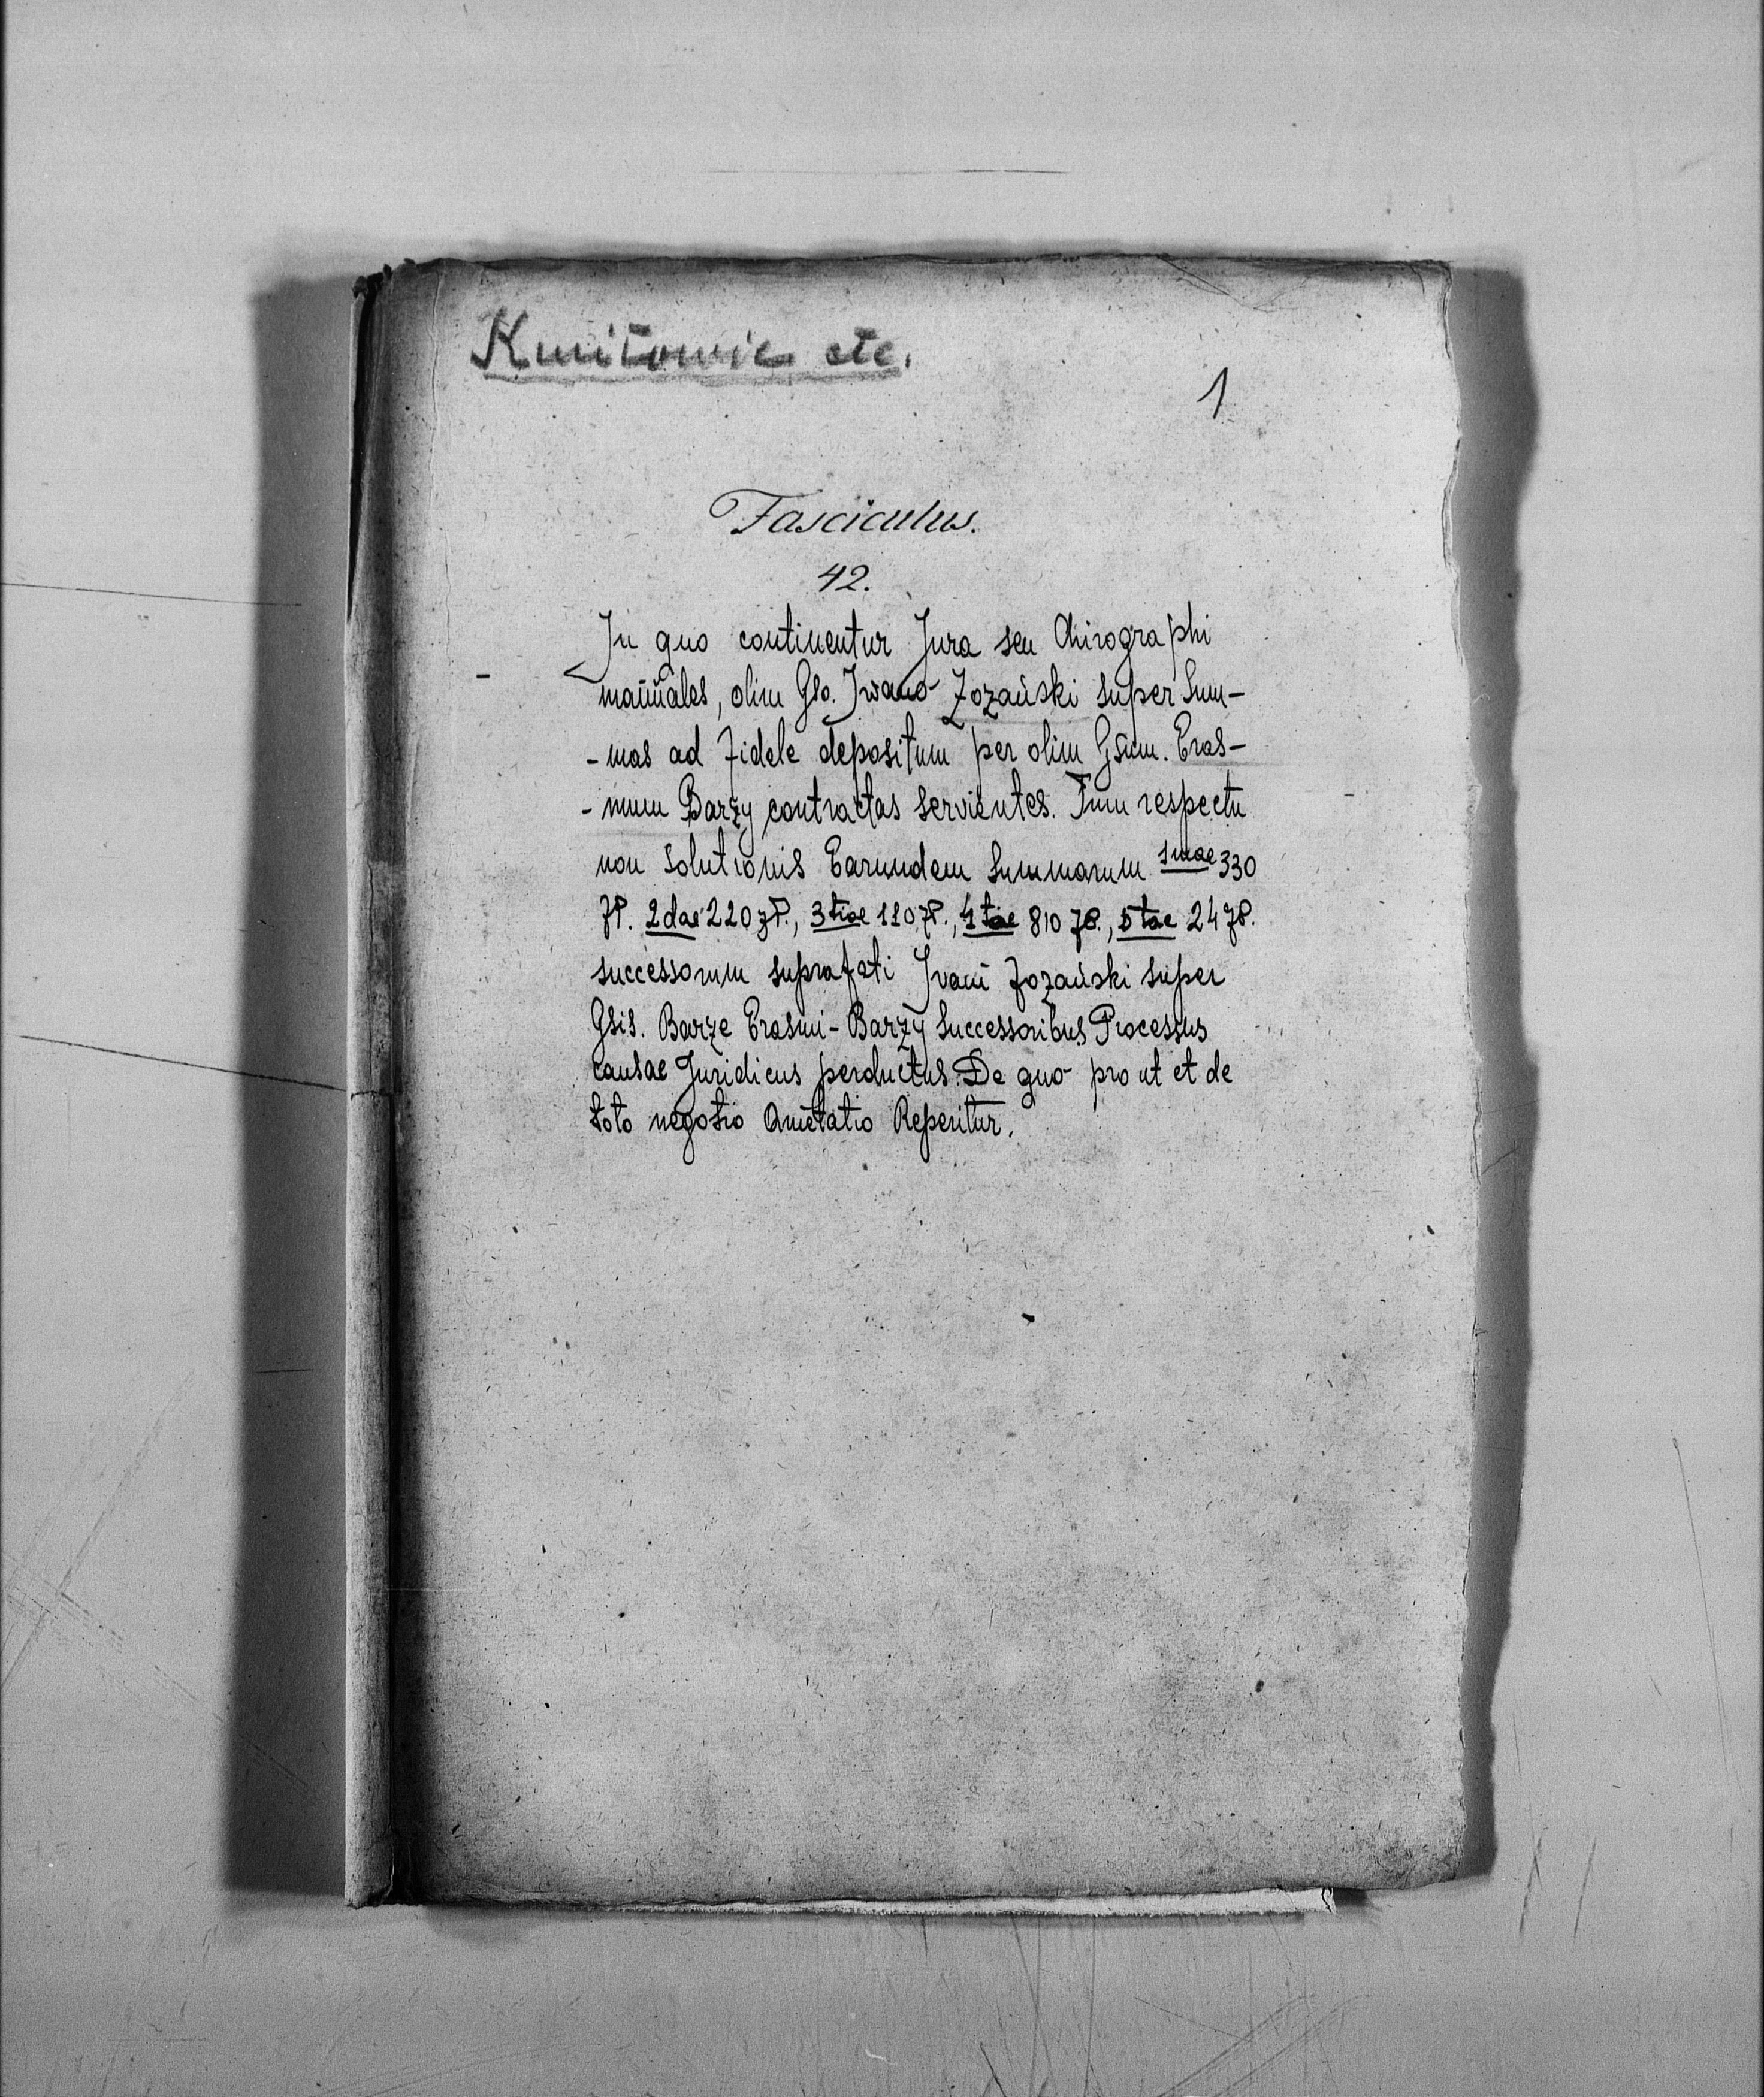 Kmitowie etc.
1
Fasciculus.
42.
In quo continentur Jura seu Chirographi
manuales, olim Gso. Iwano Zozański super Sum-
-mas ad fidele depositum per olim Gsum. Eras-
-mum Barzy contractas servientes. Tum respectu
non solutionis Earumdem Summarum 1mae 330
zP. 2dae 220 zP., 3tiae 110 zP., 4tae 810 zP., 5tae 24 zP.
successorum suprafati Ivani Zozański super
Gsis. Barze Erasmi-Barzy Successoribus Processus
causae Juridicus perductus. De quo pro ut et de
toto negotio Quietatio Reperitur.